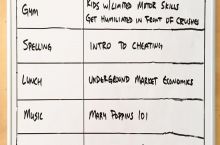 GYM
KIDS W/LIMITED MOTOR SKILLS
GET HUMILIATED IN FRONT OF CRUSHES
SPELLING
INTRO TO CHEATING
LUNCH
UNDERGROUND MARKET ECONOMICS
MUSIC
MARY POPPINS 101